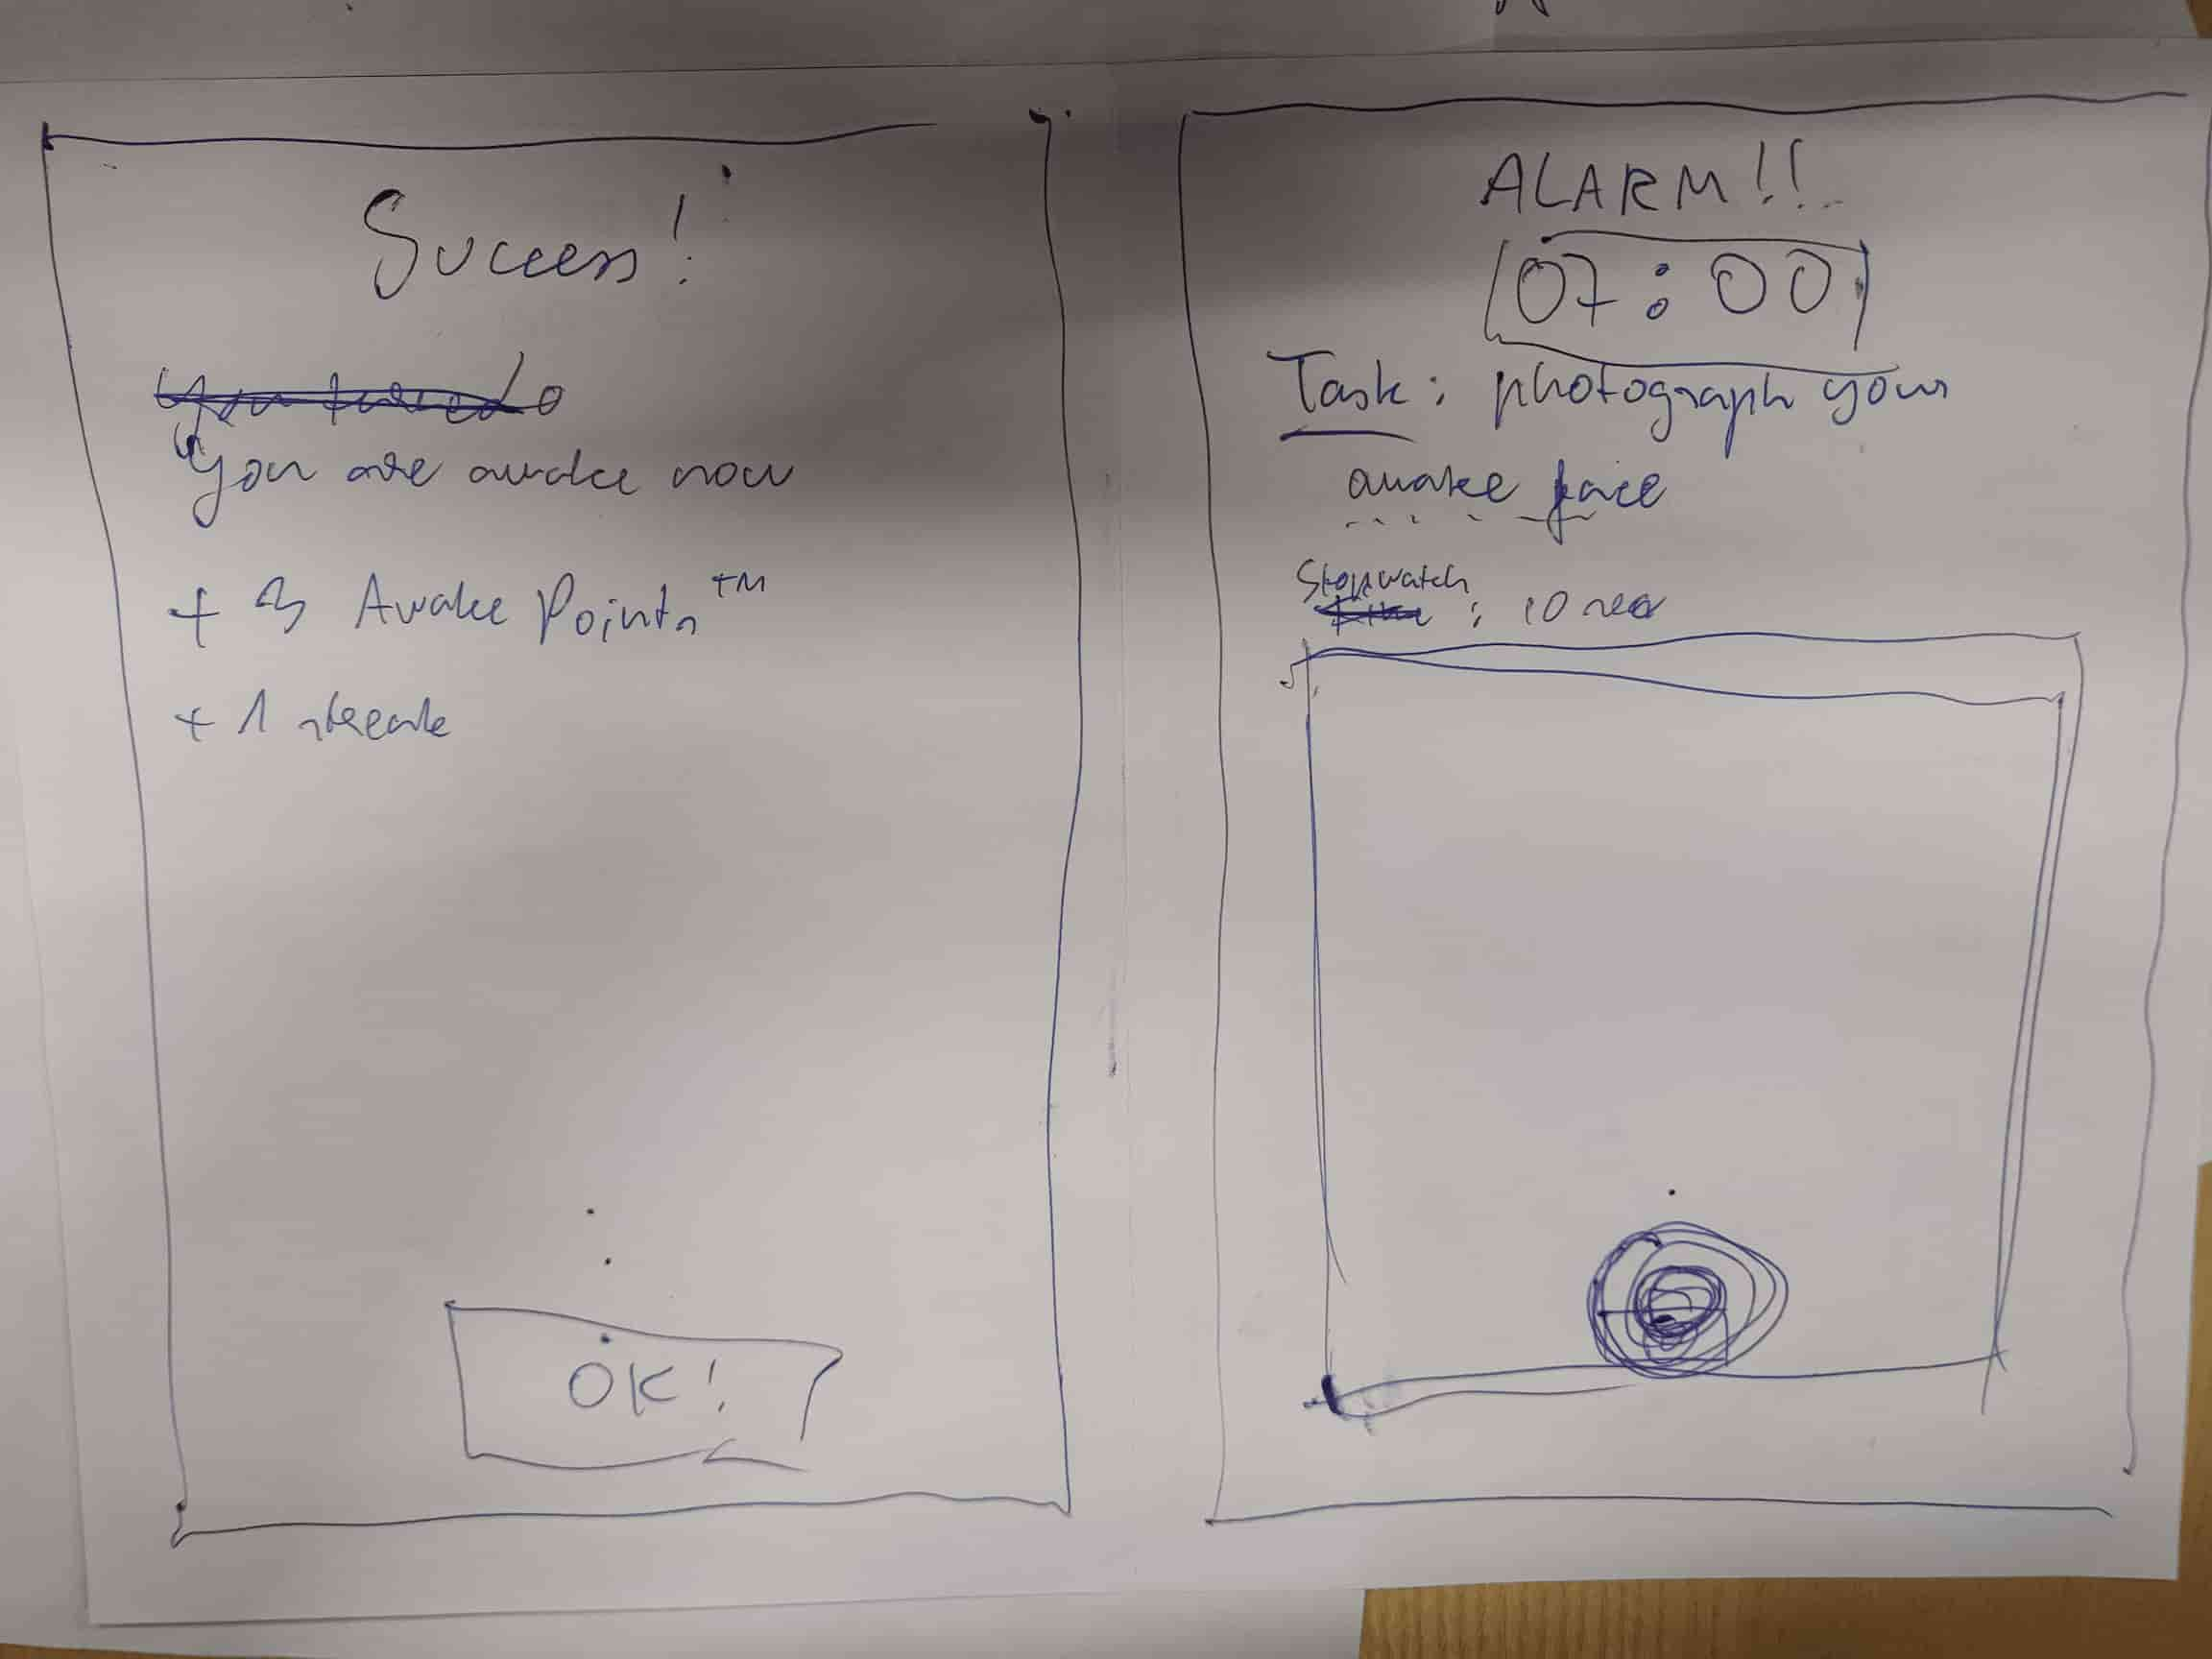 Success!
You are awake now
+ 3 Awake Points™
+ 1 streak
OK!
ALARM!!
07:00
Task: photograph your
awake face
Stopwatch : 10 sec